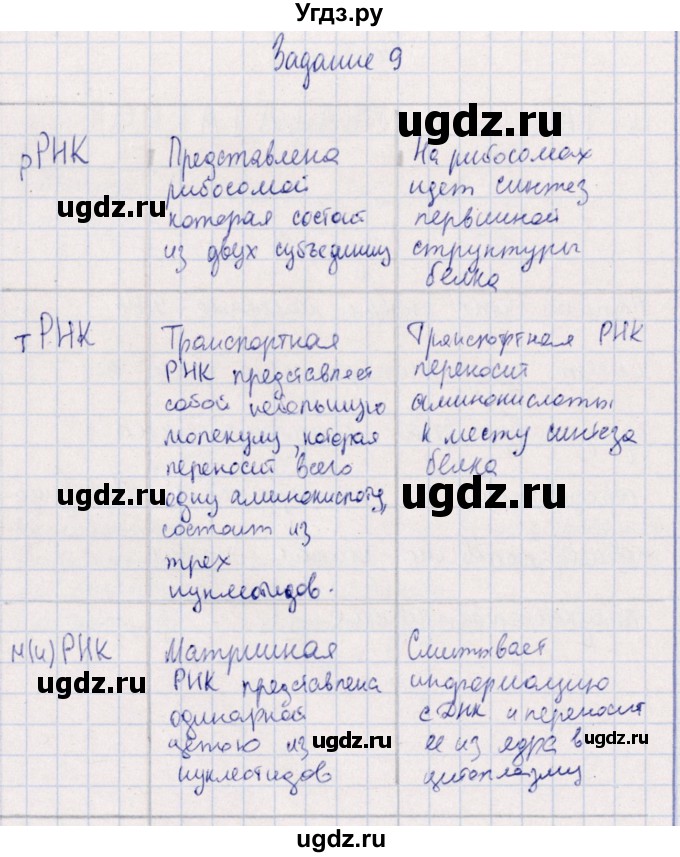 Угдз.ру
Задание 9
ugdz.ru
рРНК
Представлена
рибосомой
которая состоит
из двух субъединиц
На рибосомах
идет синтез
первичной
структуры
белка
ugdz.ru
ugdz.ru
тРНК
Транспортная
РНК представляет
собой небольшую
молекулу, которая
переносит всего
одну аминокислоту,
состоит из
трех
нуклеотидов.
Транспортная РНК
переносит
аминокислоты
к месту синтеза
белка
ugdz.ru
ugdz.ru
м(и)РНК
Матричная
РНК представлена
одинарной
цепью из
нуклеотидов
Считывает
информацию
с ДНК и переносит
ее из ядра в
цитоплазму
ugdz.ru
ugdz.ru
ugdz.ru
ugdz.ru